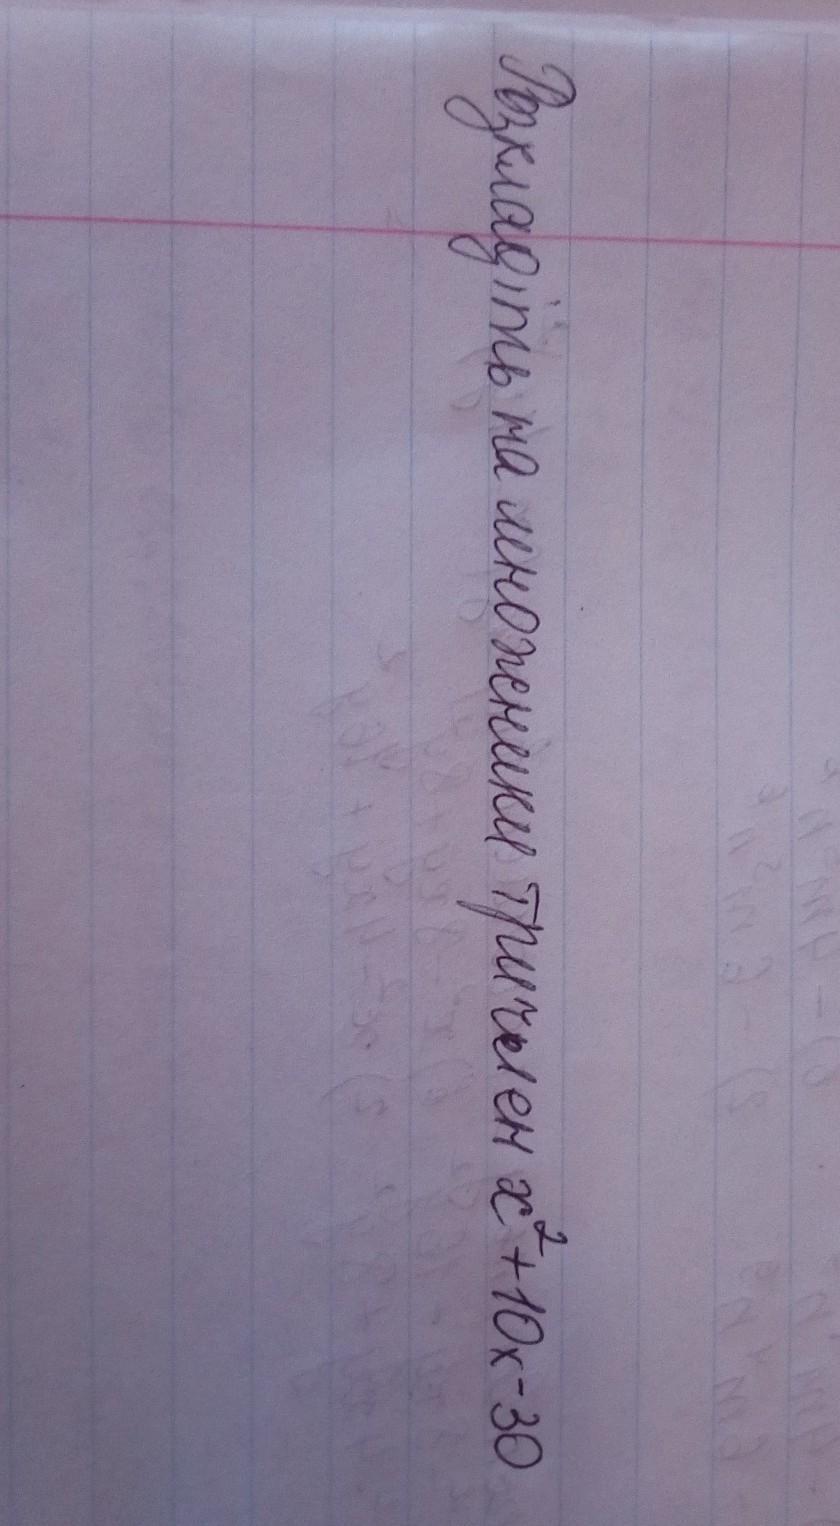 Розкладіть на множники тричлен x²+10x-30